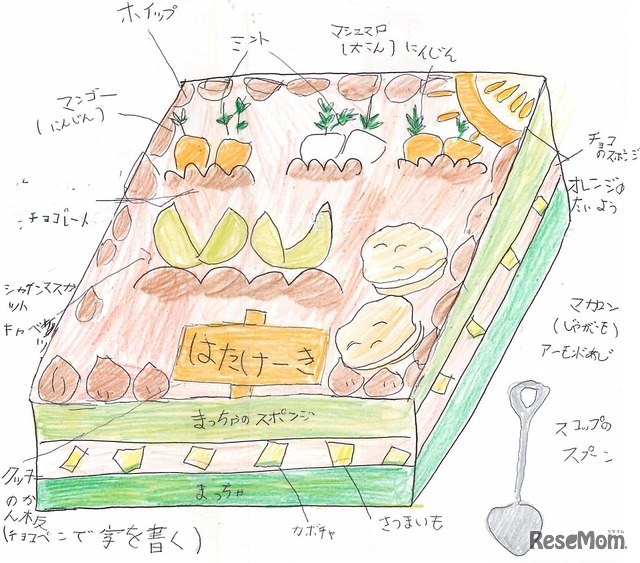 ホイップ
ミント
マシュマロ
(大こん)
にんじん
マンゴー
(にんじん)
チョコ
のスポンジ
オレンジの
たいよう
チョコレート
シャインマスカ
ット
キャベツ
マカロン
(じゃがいも)
アーモンドあじ
はたけーき
まっちゃのスポンジ
まっちゃ
スコップの
スプーン
クッキー
のかん板
(チョコペンで字を書く)
カボチャ
さつまいも
ReseMom.